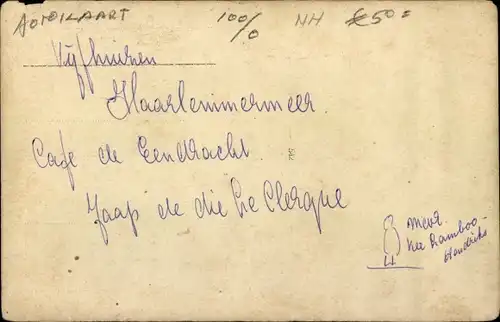 100/0 NH £50=
Vijfhuizen
Haarlemmermeer
Cafe de Eendracht
Jaap de die Le Clerque
mevr.
Kee Ramboo-
Hendriks